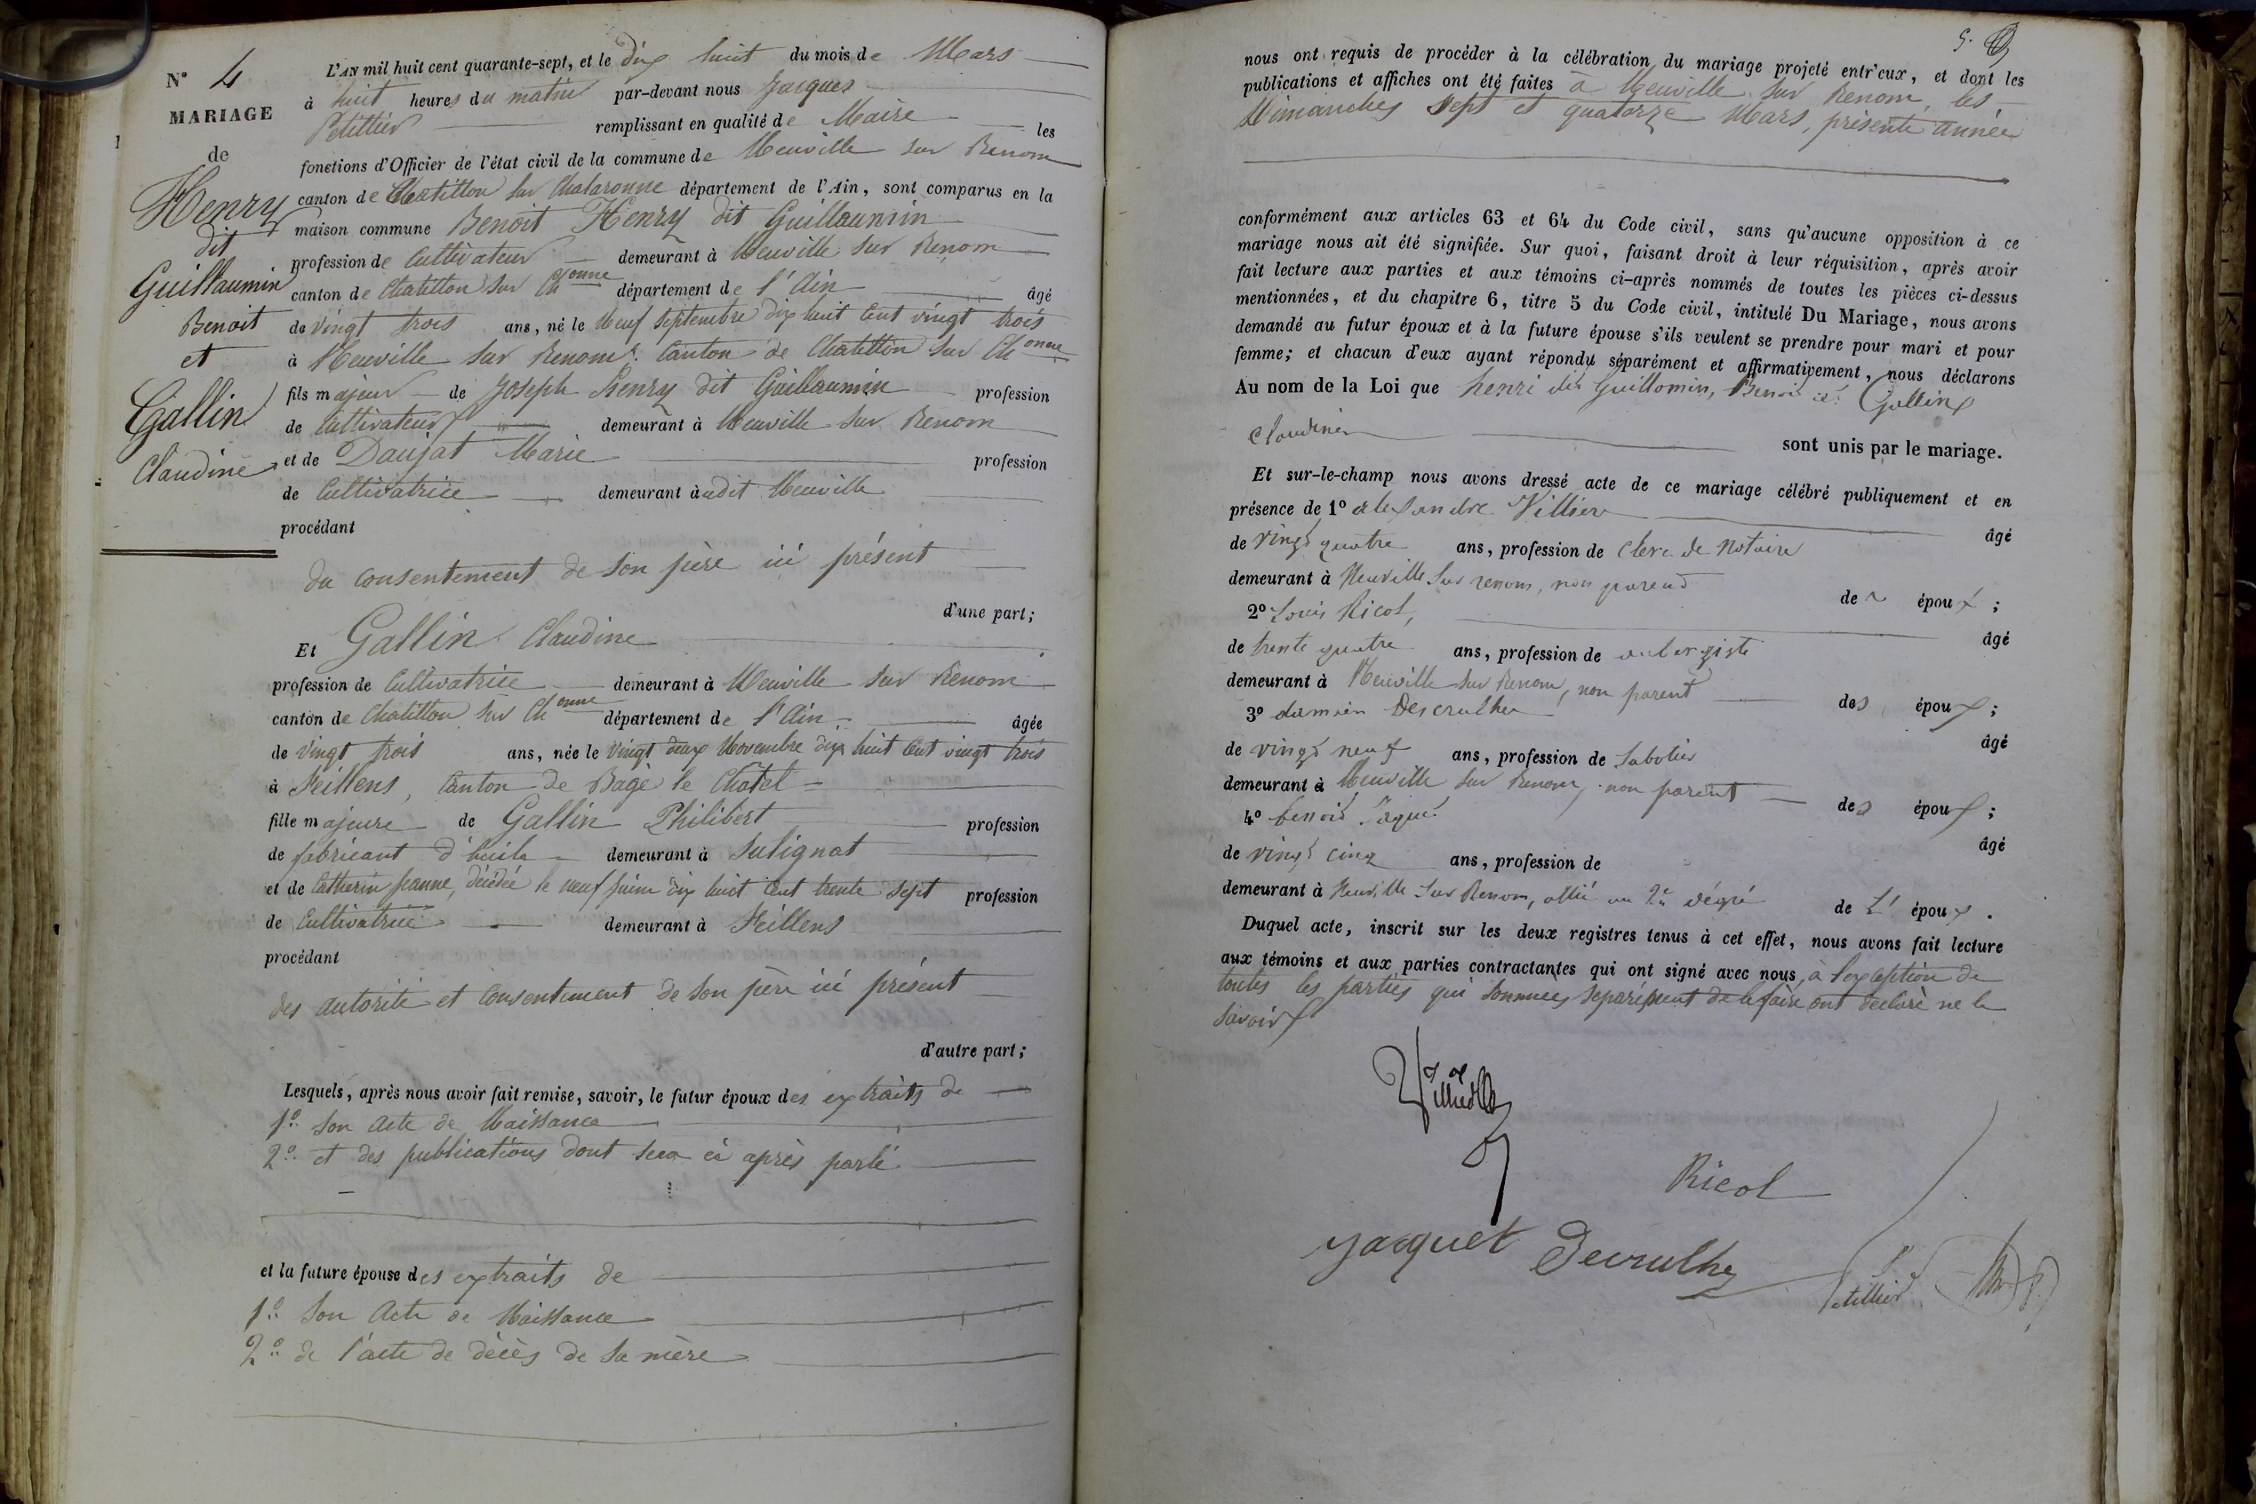 N° 4
MARIAGE
de
Henry
dit
Guillaumin
Benoit
et
Gallin
Claudine
L'AN mil huit cent quarante-sept, et le dix huit du mois de Mars
à huit heures du matin par-devant nous Jacques
Petillier remplissant en qualité de Maire les
fonctions d'Officier de l'état civil de la commune de Neuville sur Renom
canton de Chatillon sur Chalaronne département de l'Ain, sont comparus en la
maison commune Benoit Henry dit Guillaumin
profession de Cultivateur demeurant à Neuville sur Renom
canton de Chatillon sur Chonne département de l'Ain âgé
de vingt trois ans, né le Neuf Septembre dix huit cent vingt trois
à Neuville sur Renom, Canton de Chatillon sur Chonne
fils majeur de Joseph henry dit Guillaumin profession
de Cultivateur demeurant à Neuville sur Renom
et de Daujat Marie profession
de Cultivatrice demeurant audit Neuville
procédant
du consentement de son père ici présent
d'une part;
Et Gallin Claudine
profession de Cultivatrice demeurant à Neuville sur Renom
canton de Chatillon sur Chonne département de l'Ain âgée
de vingt trois ans, née le vingt deux Novembre dix huit cent vingt trois
à Feillens, Canton de Bagé le Châtel
fille majeure de Gallin Philibert profession
de fabricant d'huile demeurant à Sulignat
et de Catherin Jeanne, décédée le neuf juin dix huit cent trente sept profession
de Cultivatrice demeurant à Feillens
procédant
des autorité et consentement de son père ici présent
d'autre part;
Lesquels, après nous avoir fait remise, savoir, le futur époux des extraits de
1° Son acte de Naissance
2° et des publications dont sera ci après parlé
et la future épouse des extraits de
1° Son acte de Naissance
2° de l'acte de décès de sa mère
5.
nous ont requis de procéder à la célébration du mariage projeté entr'eux, et dont les
publications et affiches ont été faites à Neuville sur Renom, les
Dimanches sept et quatorze Mars, présente année
conformément aux articles 63 et 64 du Code civil, sans qu'aucune opposition à ce
mariage nous ait été signifiée. Sur quoi, faisant droit à leur réquisition, après avoir
fait lecture aux parties et aux témoins ci-après nommés de toutes les pièces ci-dessus
mentionnées, et du chapitre 6, titre 5 du Code civil, intitulé Du Mariage, nous avons
demandé au futur époux et à la future épouse s'ils veulent se prendre pour mari et pour
femme; et chacun d'eux ayant répondu séparément et affirmativement, nous déclarons
Au nom de la Loi que henri dit Guillomin, Benoit et Gallin
Claudine sont unis par le mariage.
Et sur-le-champ nous avons dressé acte de ce mariage célébré publiquement et en
présence de 1° alexandre Villier
âgé
de vingt quatre ans, profession de clerc de Notaire
demeurant à Neuville sur renom, non parent de époux;
2° Louis Ricol,
âgé
de trente quatre ans, profession de aubergiste
demeurant à Neuville sur Renom, non parent des époux;
3° damien Descrulhe
âgé
de vingt neuf ans, profession de Sabotier
demeurant à Neuville sur Renom, non parent des époux;
4° benoit
âgé
de vingt cinq ans, profession de
demeurant à Neuville sur Renom, allié au 2e dégré de L' époux.
Duquel acte, inscrit sur les deux registres tenus à cet effet, nous avons fait lecture
aux témoins et aux parties contractantes qui ont signé avec nous, à l'exception de
toutes les parties qui sommées séparément de le faire ont déclaré ne le
savoir
Ricol
Jacquet
Petillier